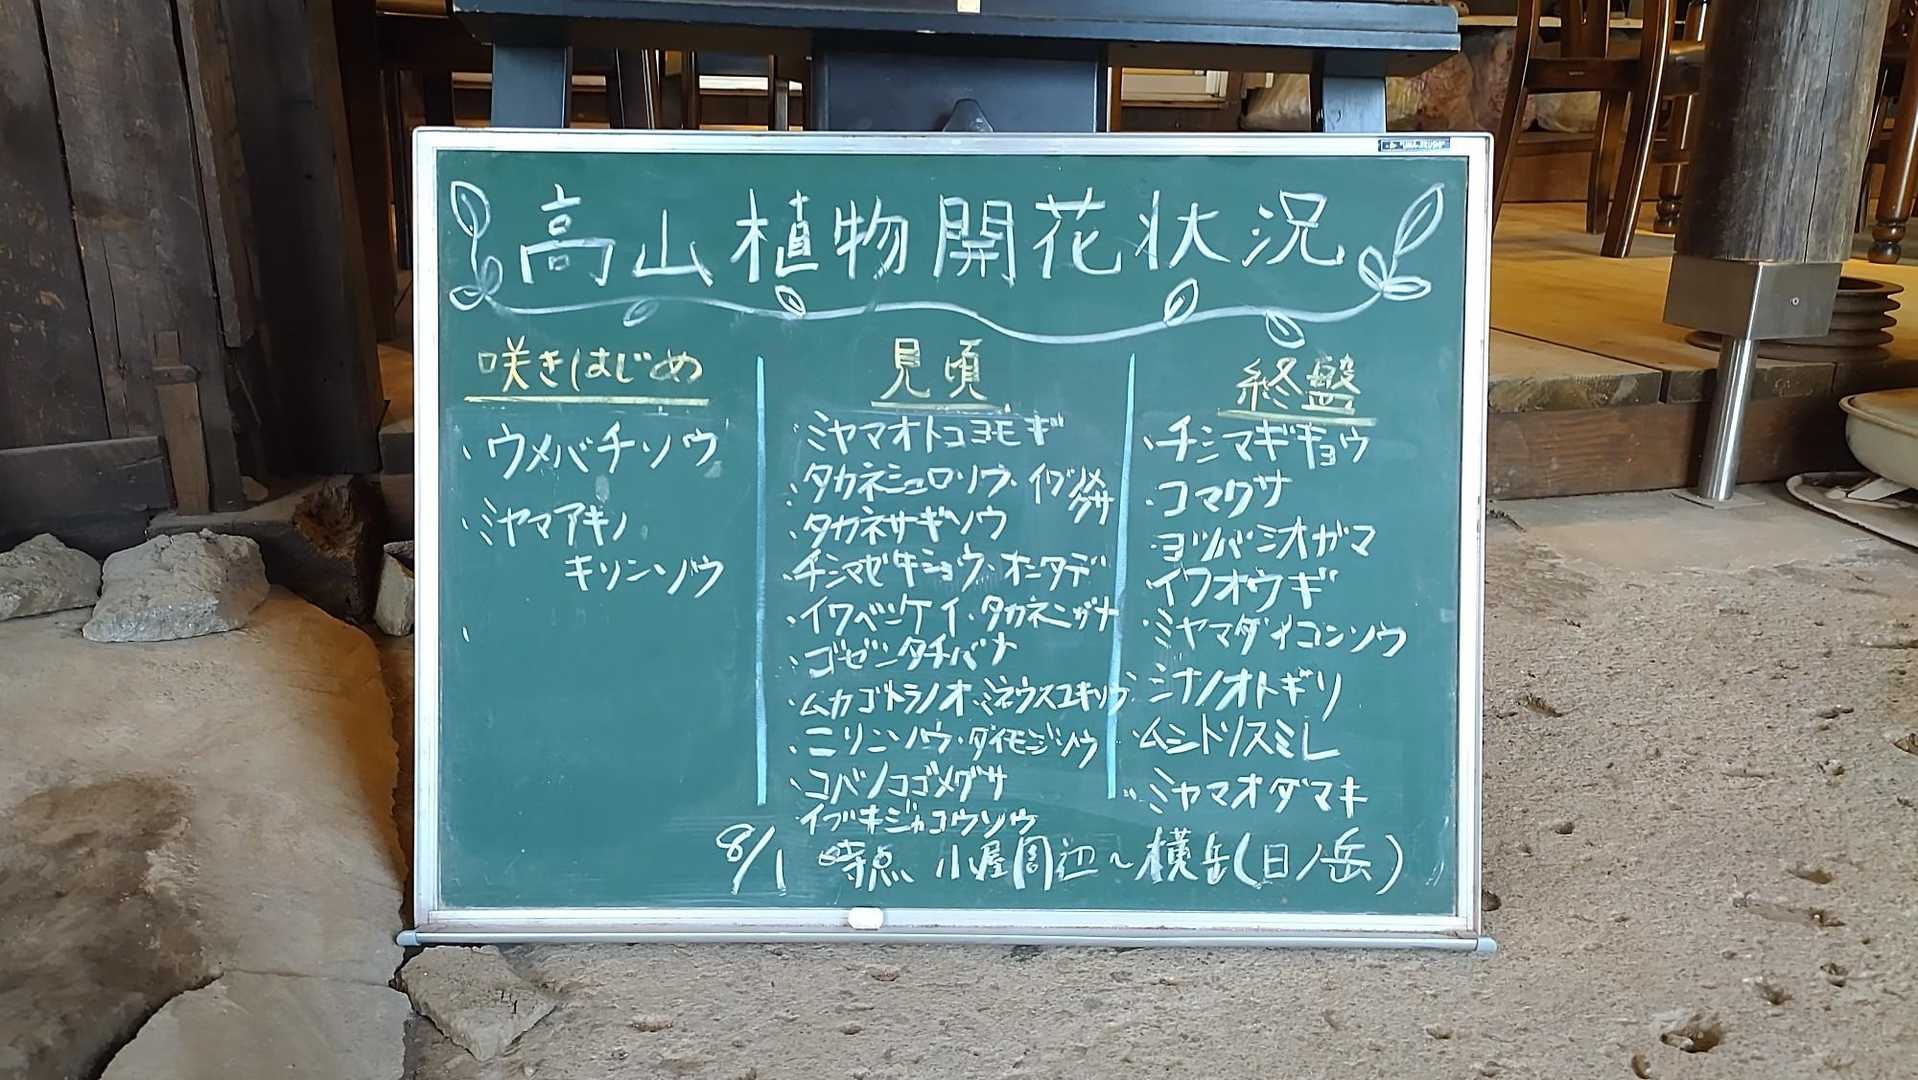 高山植物開花状況
咲きはじめ
・ウメバチソウ
・ミヤマアキノ
キリンソウ
見頃
・ミヤマオトコヨモギ
・タカネシュロソウ・イブリメグサ
・タカネサギソウ
・チシマゼキショウ・オニタデ
・イワベンケイ・タカネニガナ
・ゴゼンタチバナ
・ムカゴトラノオ・ミネウスユキソウ
・ニリンソウ・ダイモンジソウ
・コバノコゴメグサ
・イブキジャコウソウ
終盤
・チシマギキョウ
・コマクサ
・ヨツバシオガマ
・イワオウギ
・ミヤマダイコンソウ
・シナノオトギリ
・ムシトリスミレ
・ミヤマオダマキ
8/1 時点 小屋周辺～横岳(日ノ岳)